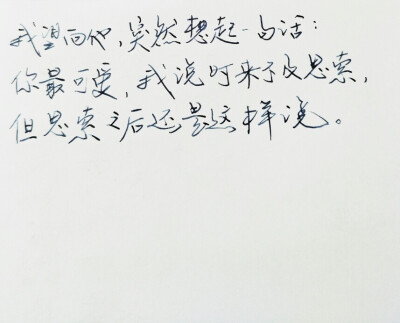 我望向他,突然想起一句话:
你最可爱,我说时来不及思索,
但思索之后还是这样说。